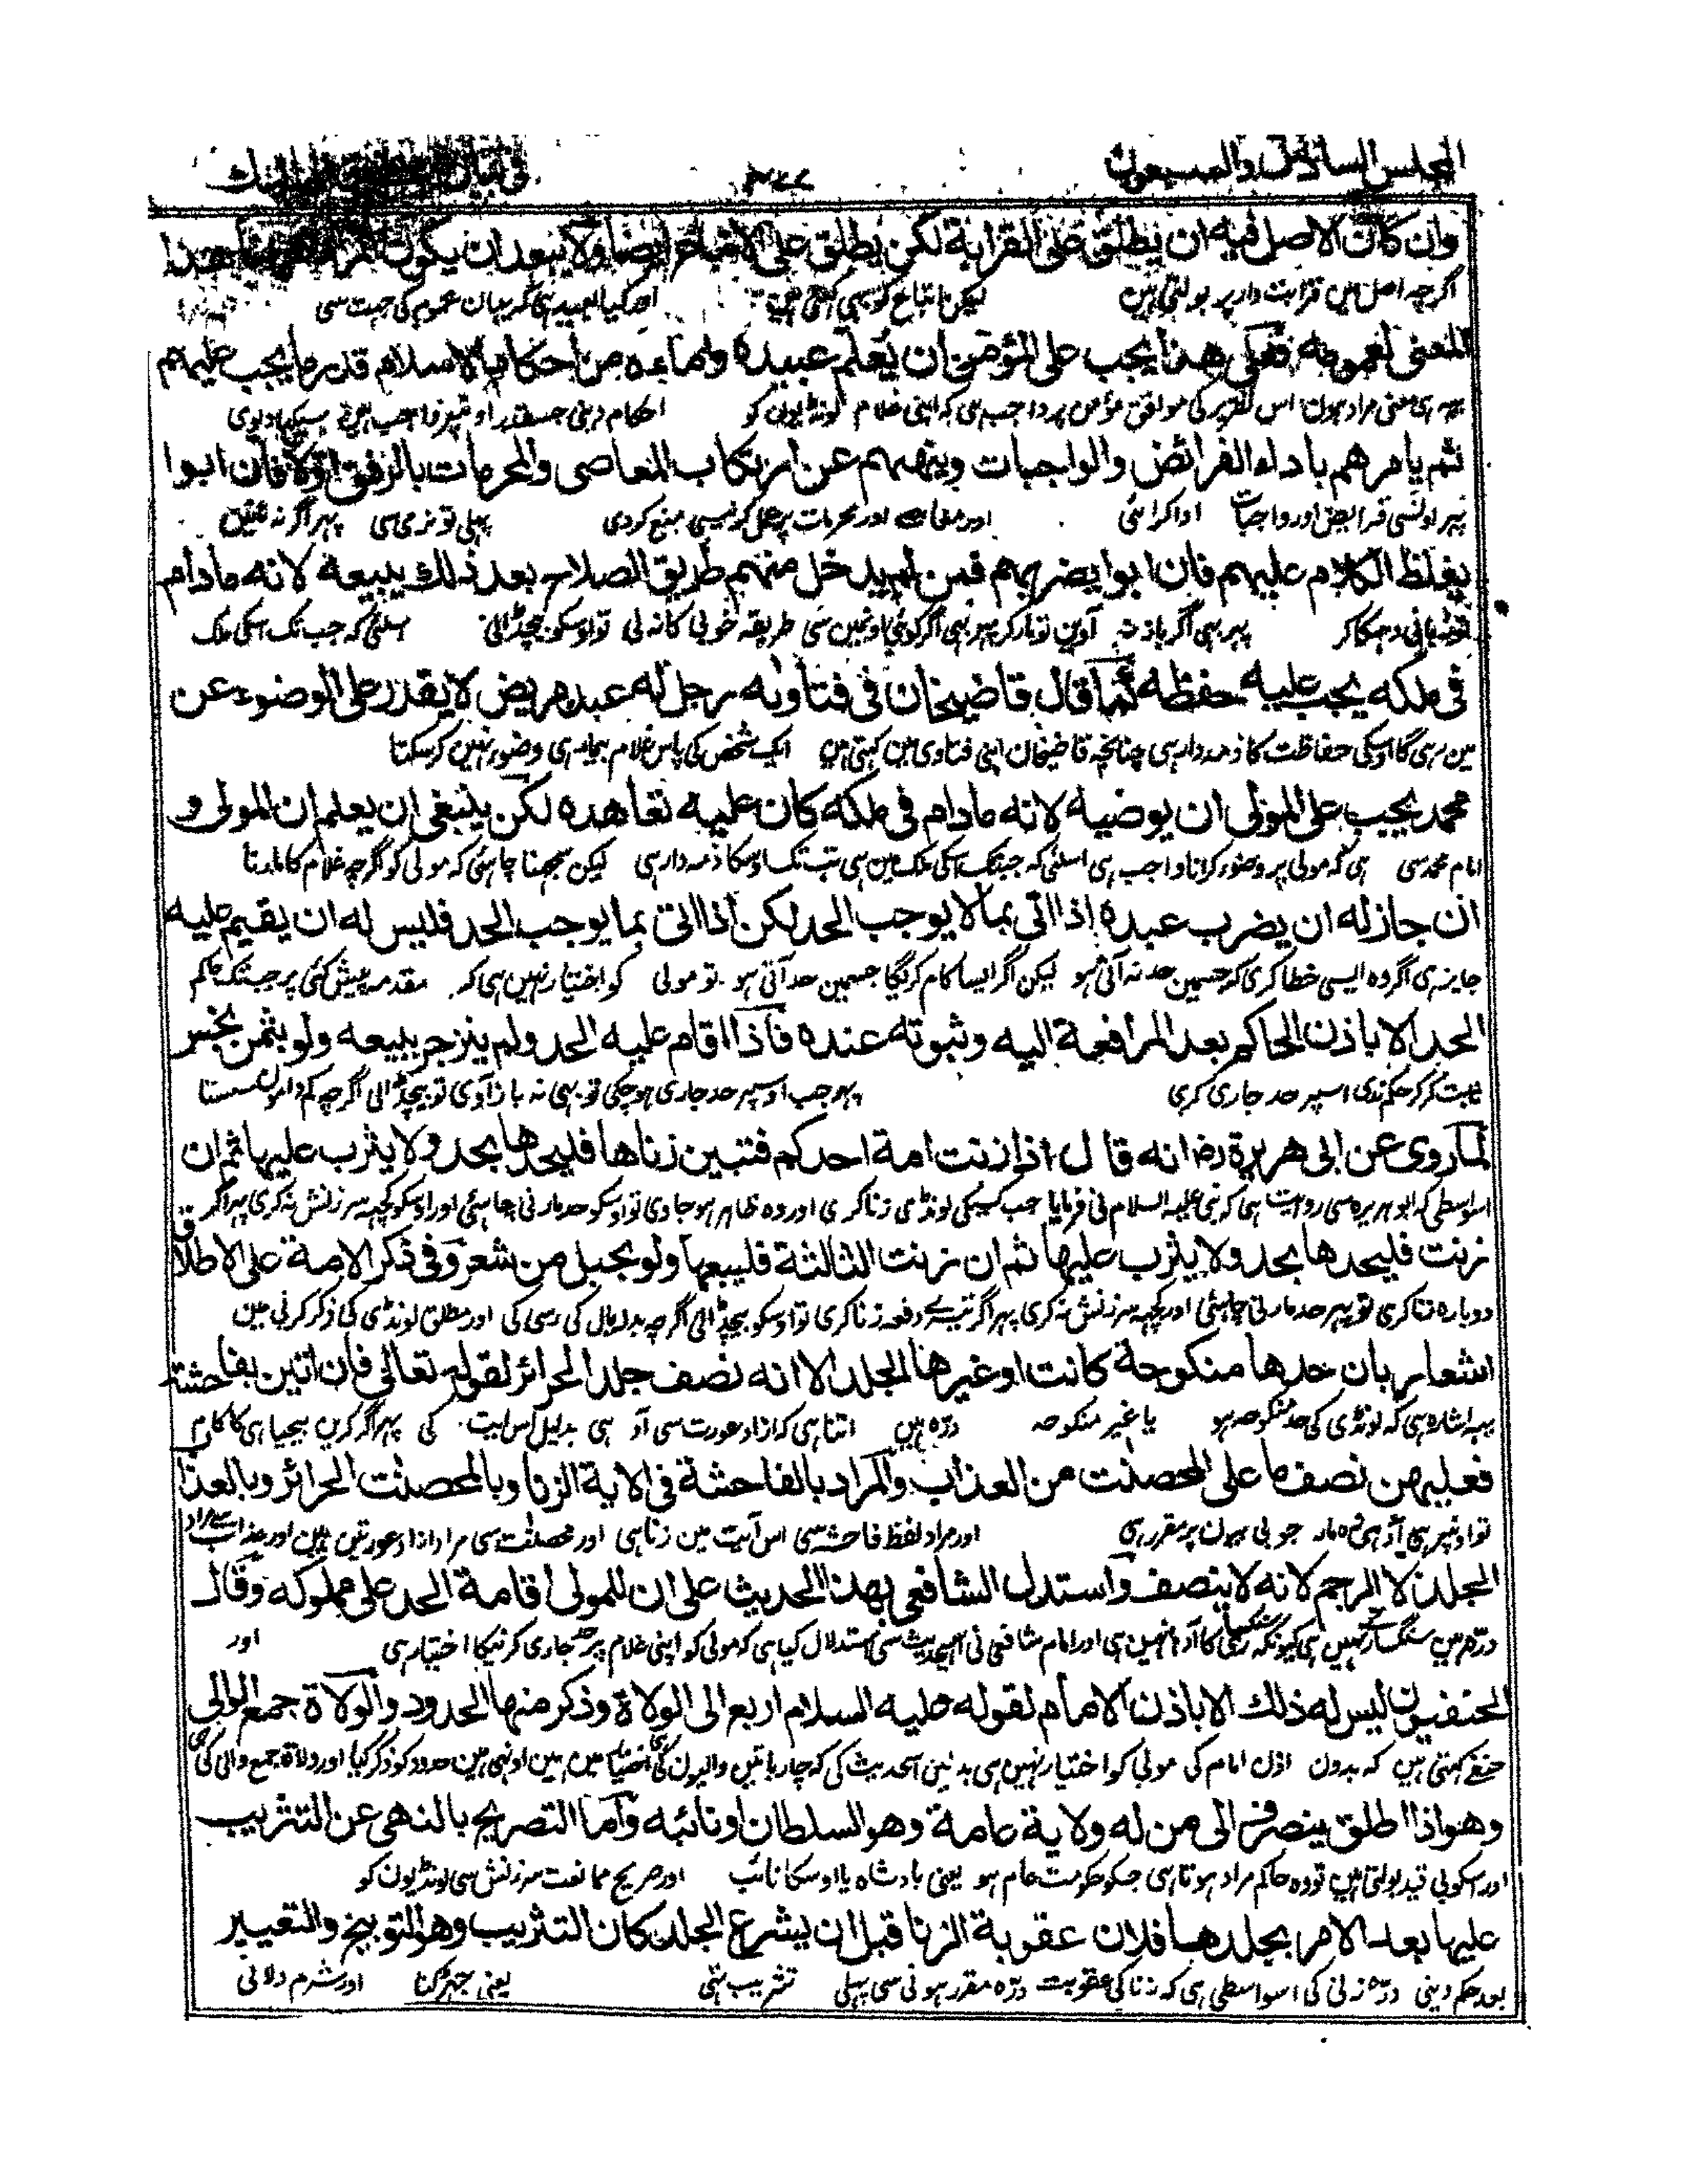 المجلس السادس والسبعون
وان كان الاصل فيه ان يطلق على القرابة لكن يطلق على الاتباع ايضا ولا يبعد ان يكون المراد هذا
اگرچہ اصل مین قرابت دار پر بولتی ہین لیکن اتباع کو بہی کہتی ہین اور کیا بعید ہی کہ یہان عموم کی جہت سی
المعنى لعمومه فعلى هذا يجب على المؤمن ان يعلم عبيده واماءه من احكام الاسلام قدر ما يجب عليهم
یہہ ہی معنی مراد ہون اس تقریر کی موافق مؤمن پر واجب ہی کہ اپنی غلام لونڈیون کو احکام دینی جسقدر اونپر واجب ہین سیکہا دیوی
ثم يامرهم باداء الفرائض والواجبات وينههم عن ارتكاب المعاصى والمحرمات بالرفق اولا فان ابوا
پہر اونسی فرایض اور واجبات ادا کرائی اور معاصے اور محرمات پر عمل کرنیسی منع کردی پہلی تو نرمی سی پہر اگر نہ مانین
يغلظ الكلام عليهم فان ابوا يضربهم فمن لم يدخل منهم طريق الصلاح بعد ذلك يبيعه لانه مادام
دہمکا کر پہر بہی اگر باز نہ آوین تو مار کر پہر بہی اگر کوئی اونمین سی طریقہ خوبی کا نہ لی تو اوسکو بیچڈالی اسلئی کہ جب تک اسکی ملک
فى ملكه يجب عليه حفظه كما قال قاضيخان فى فتاويه رجل له عبد مريض لا يقدر على الوضوء عن
مین رہی گا اوسکی حفاظت کا ذمہ دار ہی چنانچہ قاضیخان اپنی فتاوی مین کہتی ہین ایک شخص کی پاس غلام بیمار ہی وضو نہین کرسکتا
محمد يجب على المولى ان يوضيه لانه مادام فى ملكه كان عليه تعاهده لكن ينبغى ان يعلم ان المولى و
امام محمد سی ہی کہ مولی پر وضو کرانا واجب ہی اسلئی کہ جبتک اسکی ملک مین ہی تب تک اوسکا ذمہ دار ہی لیکن سمجہنا چاہئی کہ مولی کو اگرچہ غلام کا مارنا
ان جاز له ان يضرب عبده اذا اتى بما لا يوجب الحد لكن اذا اتى بما يوجب الحد فليس له ان يقيم عليه
جایز ہی اگر وہ ایسی خطا کری کہ جسمین حد نہ آتی ہو لیکن اگر ایسا کام کریگا جسمین حد آتی ہو تو مولی کو اختیار نہین ہی کہ مقدمہ پیش کئی پر جبتک حاکم
الحد الا باذن الحاكم بعد المرافعة اليه وثبوته عنده فاذا اقام عليه الحد ولم ينزجر يبيعه ولو بثمن بخس
ثابت کر کر حکم ندی اسپر حد جاری کری پہر جب اوسپر حد جاری ہوچکی تو بہی نہ باز آوی تو بیچڈالی اگرچہ کم دامون سستا
لما روى عن ابى هريرة رضـ انه قال اذا زنت امة احدكم فتبين زناها فليحدها بحد ولا يثرب عليها ثم ان
اسواسطی کہ ابو ہریرہ سی روایت ہی کہ نبی علیہ السلام نی فرمایا جب کسیکی لونڈی زنا کری اور وہ ظاہر ہوجاوی تو اوسکو حد مارنی چاہئی اور اوسکو کچہہ سرزنش نکری پہر اگر
زنت فليحدها بحد ولا يثرب عليها ثم ان زنت الثالثة فليبعها ولو بحبل من شعر وفى ذكر الامة على الاطلاق
دوبارہ زنا کری تو پہر حد مارنی چاہئی اور کچہہ سرزنش نکری پہر اگر تیسرے دفعہ زنا کری تو اوسکو بیچڈالی اگرچہ بدلی بال کی رسی کی اور مطلق لونڈی کی ذکر کرنی مین
اشعار بان حدها منكوحة كانت او غيرها الجلد الا انه نصف جلد الحرائر لقوله تعالى فان اتين بفاحشة
یہہ اشارہ ہی کہ لونڈی کی حد منکوحہ ہو یا غیر منکوحہ درّہ ہین اتنا ہی کہ ازاد عورت سی آد ہی بدلیل اس آیت کی پہر اگر کرین بیحیاہی کا کام
فعليهن نصف ما على المحصنٰت من العذاب والمراد بالفاحشة فى الاية الزنا وبالمحصنٰت الحرائر وبالعذاب
تو اونپر ہی آدہی وہ مار جو بی بیون پر مقرر ہی اور مراد لفظ فاحشہ سی اس آیت مین زنا ہی اور محصنٰت سی مراد ازاد عورتین ہین اور عذاب سے مراد
الجلد لا الرجم لانه لا ينصف واستدل الشافعى بهذا الحديث على ان للمولى اقامة الحد على مملوكه وقال
درّہ ہین سنگسار نہین ہی کیونکہ سنگسار کا آدہا نہین ہی اور امام شافعی نی اسحدیث سی استدلال کیا ہی کہ مولی کو اپنی غلام پر حد جاری کرنیکا اختیار ہی اور
الحنفيون ليس له ذلك الا باذن الامام لقوله عليه السلام اربع الى الولاة وذكر منها الحدود والولاة جمع الوالى
حنفے کہتی ہین کہ بدون اذن امام کی مولی کو اختیار نہین ہی اسحدیث کی کہ چار باتین والیون کی اختیار مین ہین اونہی مین حدود کو ذکر کیا اور ولاة جمع والی کی ہی
وهو اذا اطلق ينصرف الى من له ولاية عامة وهو السلطان او نائبه واما التصريح بالنهى عن التثريب
اور اسکو بی قید بولتی ہین تو وہ حاکم مراد ہوتا ہی جسکو حکومت عام ہو یعنی بادشاہ یا اوسکا نائب اور صریح ممانعت سرزنش سی لونڈیون کو
عليها بعد الامر بجلدها فلان عقوبة الزنا قبل ان يشرع الجلد كان التثريب وهو التوبيخ والتعيير
بعد حکم دینی درّہ زنی کی اسواسطی ہی کہ زنا کی عقوبت درّہ مقرر ہونی سی پہلی تثریب تہی یعنی جہڑکنا اور شرم دلانی